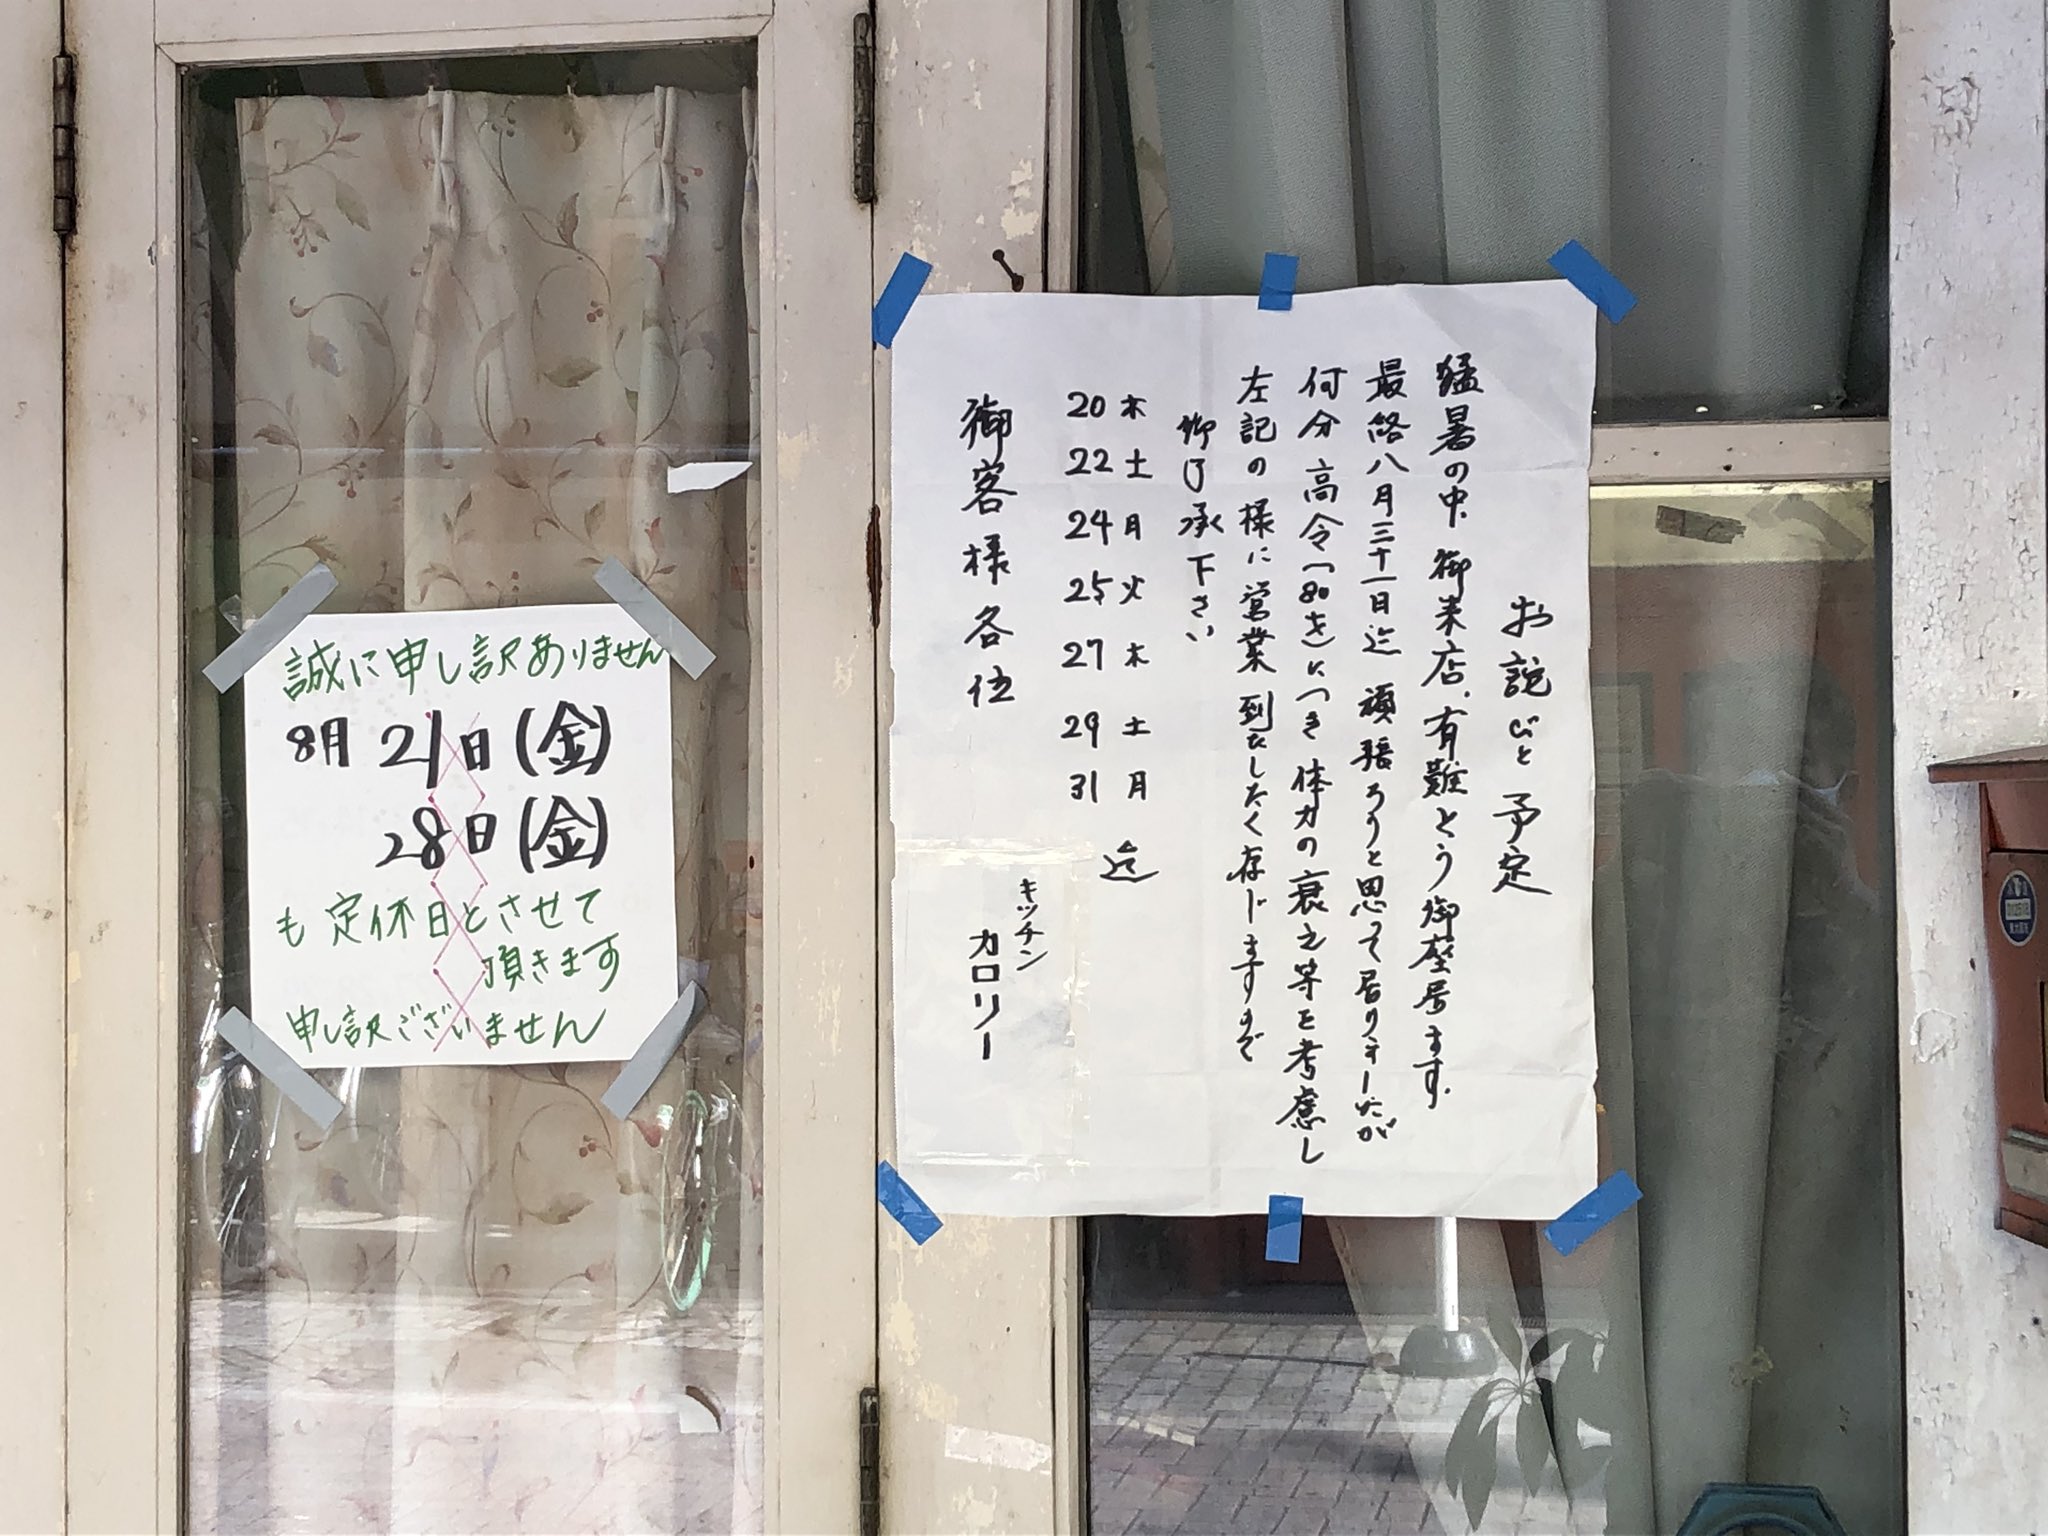 誠に申し訳ありません
8月 21日(金)
28日(金)
も定休日とさせて
頂きます
申し訳ございません
お詫びと予定
猛暑の中、御来店、有難とう御座居ます。
最終八月三十一日迄 頑張ろうと思って居りましたが
何分高令(80才)につき体力の衰え等を考慮し
左記の様に営業到たしたく存じますので
御了承下さい
20 木
22 土
24 月
25 火
27 木
29 土
31 月 迄
御客様各位
キッチン
カロリー